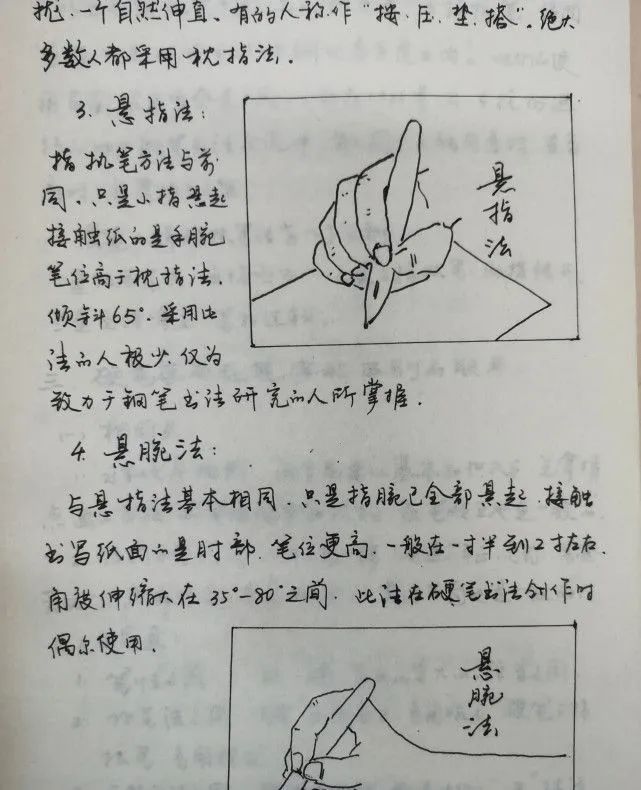 拢、一个自然伸直。有的人称作“按、压、垫、搭”。绝大
多数人都采用枕指法.
3. 悬指法：
指执笔方法与前
同、只是小指悬起
接触纸的是手腕
笔位高于枕指法.
倾斜65°.采用此
法的人极少.仅为
致力于钢笔书法研究的人所掌握.
悬指法
4. 悬腕法：
与悬指法基本相同.只是指腕已全部悬起.接触
书写纸面的是肘部.笔位更高.一般在一寸半到2寸左右.
角度伸缩大在35°-80°之间.此法在硬笔书法创作时
偶尔使用.
悬腕法